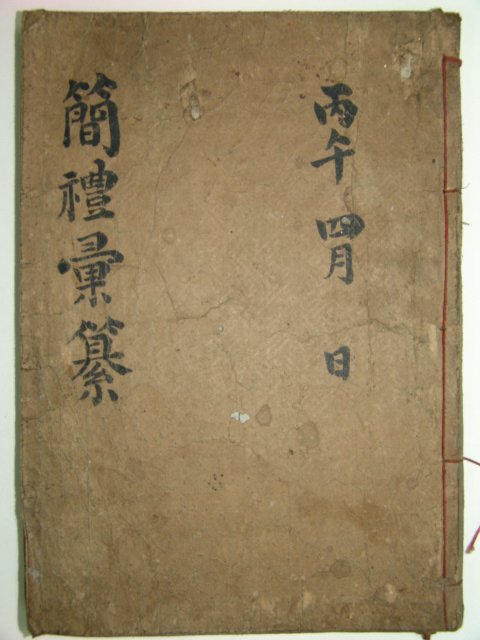 丙午 四月 日
簡禮彙纂